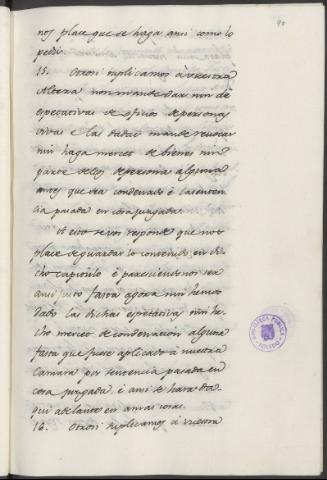 90
nos place que se haga ansi como lo
pedis.
15. Otrosi suplicamos à vuestra
Alteza non mande dar nin dé
espetativas de oficios de personas
vivas e las dadas mande revocar
nin haga merced de bienes nin
parte dellos de persona alguna
antes que sea condenado é la senten
cia pasada en cosa juzgada.
A esto se vos responde que nos
place de guardar lo contenido en di
cho capitulo é paresciendonos ser
ansi justo fasta agora nin hemos
dado las dichas espetativas nin he
cho merced de condenacion alguna
fasta que fuese aplicado à nuestra
Camara por sentencia pasada en
cosa juzgada é ansi se hara da
qui adelante en ambas cosas.
16. Otrosi suplicamos à vuestra
BIBLIOTECA PUBLICA
TOLEDO